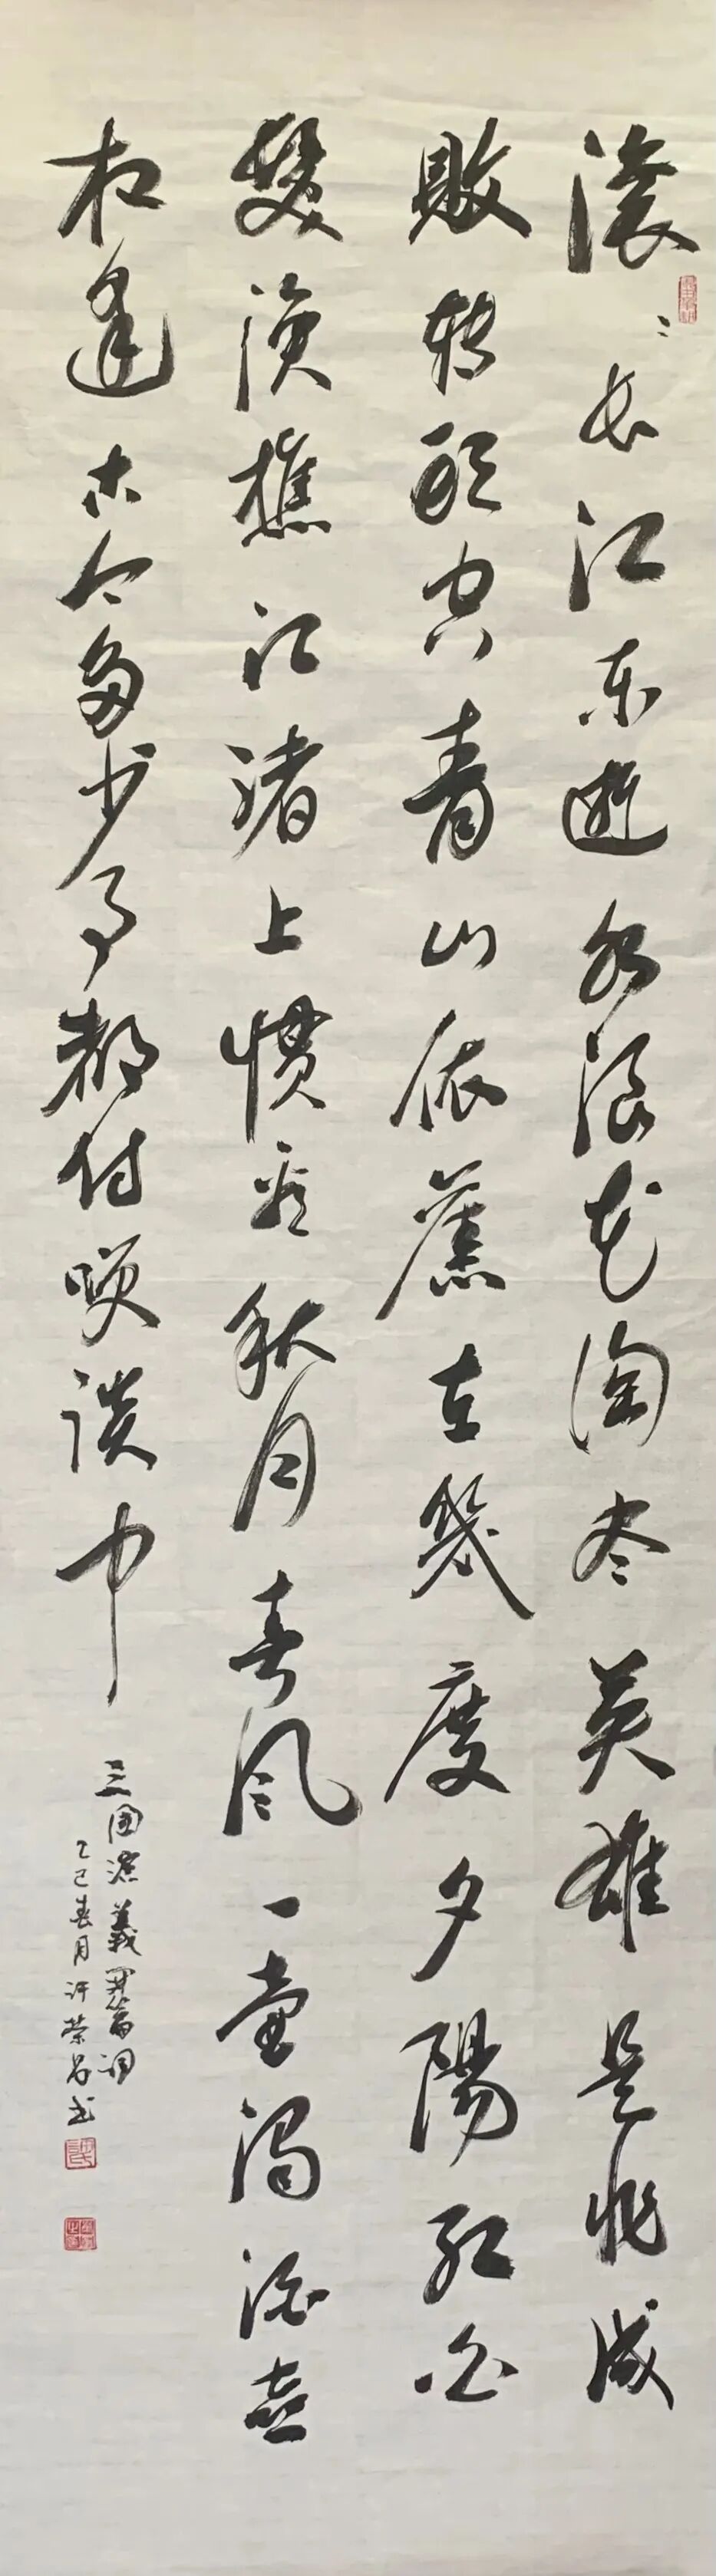 滚〻长江东逝水浪花淘尽英雄是非成
敗转頭空青山依舊在幾度夕陽红白
髮渔樵江渚上惯看秋月春风一壶濁酒喜
相逢古今多少事都付咲談中
三国演義開篇词
乙巳春月许荣书